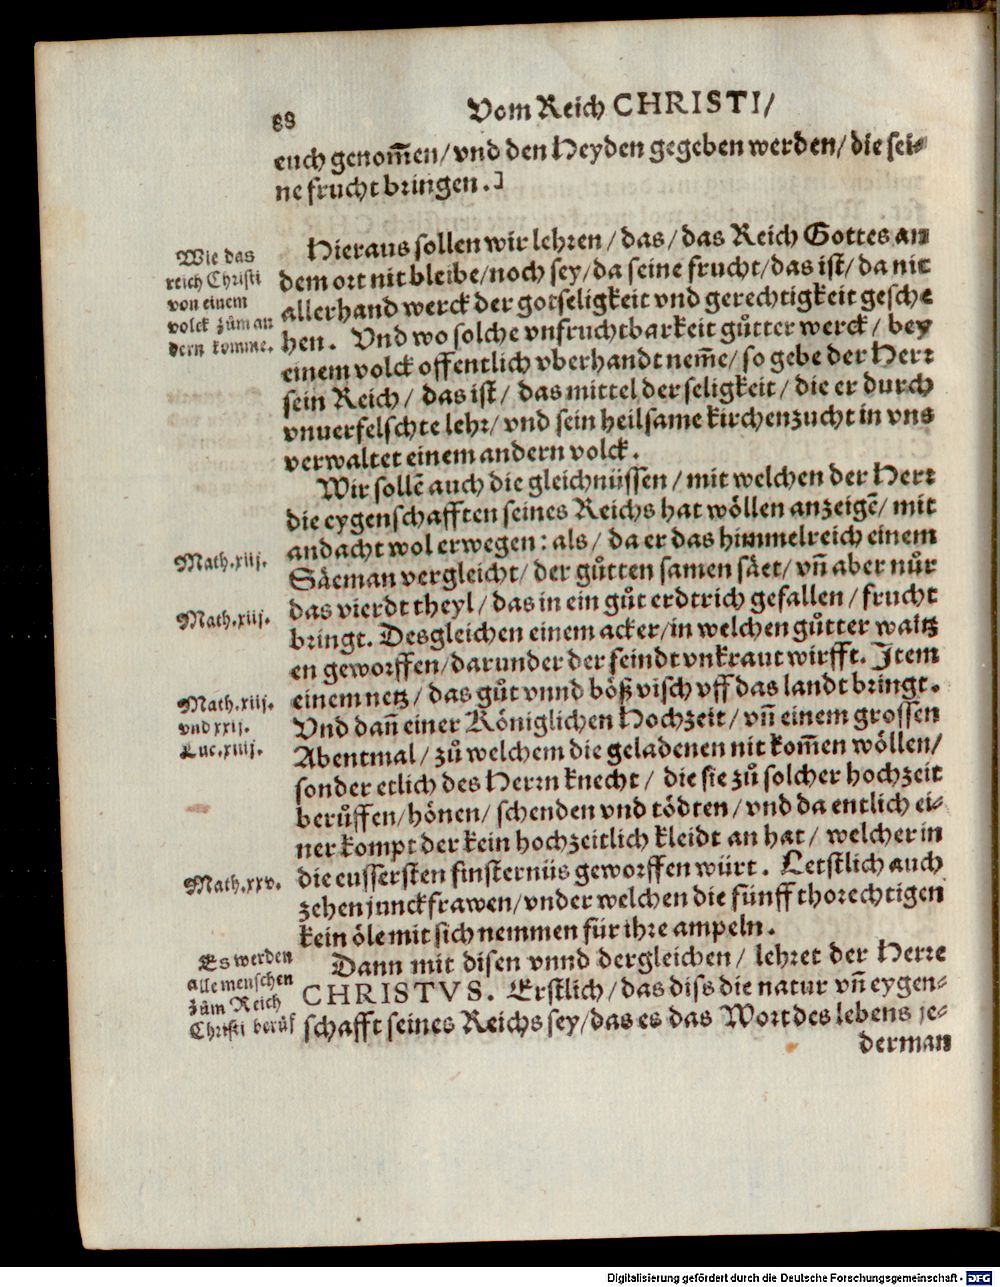 88
Vom Reich CHRISTI/
euch genom̃en/ vnd den Heyden gegeben werden/ die sei⸗
ne frucht bringen.]
Wie das
reich Christi
von einem
volck zům an
dern komme.
Hieraus sollen wir lehren/ das/ das Reich Gottes an
dem ort nit bleibe/ noch sey/ da seine frucht/ das ist/ da nit
allerhand werck der gotseligkeit vnd gerechtigkeit gesche
hen. Vnd wo solche vnfruchtbarkeit gůtter werck/ bey
einem volck offentlich vberhandt nem̃e/ so gebe der Herr
sein Reich/ das ist/ das mittel der seligkeit/ die er durch
vnuerfelschte lehr/ vnd sein heilsame kirchenzucht in vns
verwaltet einem andern volck.
Wir sollẽ auch die gleichnüssen/ mit welchen der Herr
die eygenschafften seines Reichs hat wöllen anzeigẽ/ mit
andacht wol erwegen: als/ da er das himmelreich einem
Math.xiij.
Säeman vergleicht/ der gůtten samen säet/ vñ aber nůr
das vierdt theyl/ das in ein gůt erdtrich gefallen/ frucht
Math.xiij.
bringt. Desgleichen einem acker/ in welchen gůtter waitz
en geworffen/ darunder der feindt vnkraut wirfft. Item
Math.xiij.
vnd xxij.
Luc.xiiij.
einem netz/ das gůt vnnd böß visch vff das landt bringt.
Vnd dañ einer Königlichen Hochzeit/ vñ einem grossen
Abentmal/ zů welchem die geladenen nit kom̃en wöllen/
sonder etlich des Herrn knecht/ die sie zů solcher hochzeit
berůffen/ hönen/ schenden vnd tödten/ vnd da entlich ei⸗
ner kompt der kein hochzeitlich kleidt an hat/ welcher in
Math.xxv.
die eussersten finsternüs geworffen würt. Letstlich auch
zehen junckfrawen/ vnder welchen die fünff thorechtigen
kein öle mit sich nemmen für ihre ampeln.
Es werden
alle menschen
zům Reich
Christi berůf
Dann mit disen vnnd dergleichen/ lehret der Herre
CHRISTVS. Erstlich/ das diss die natur vñ eygen⸗
schafft seines Reichs sey/ das es das Wort des lebens je⸗
derman
Digitalisierung gefördert durch die Deutsche Forschungsgemeinschaft - DFG